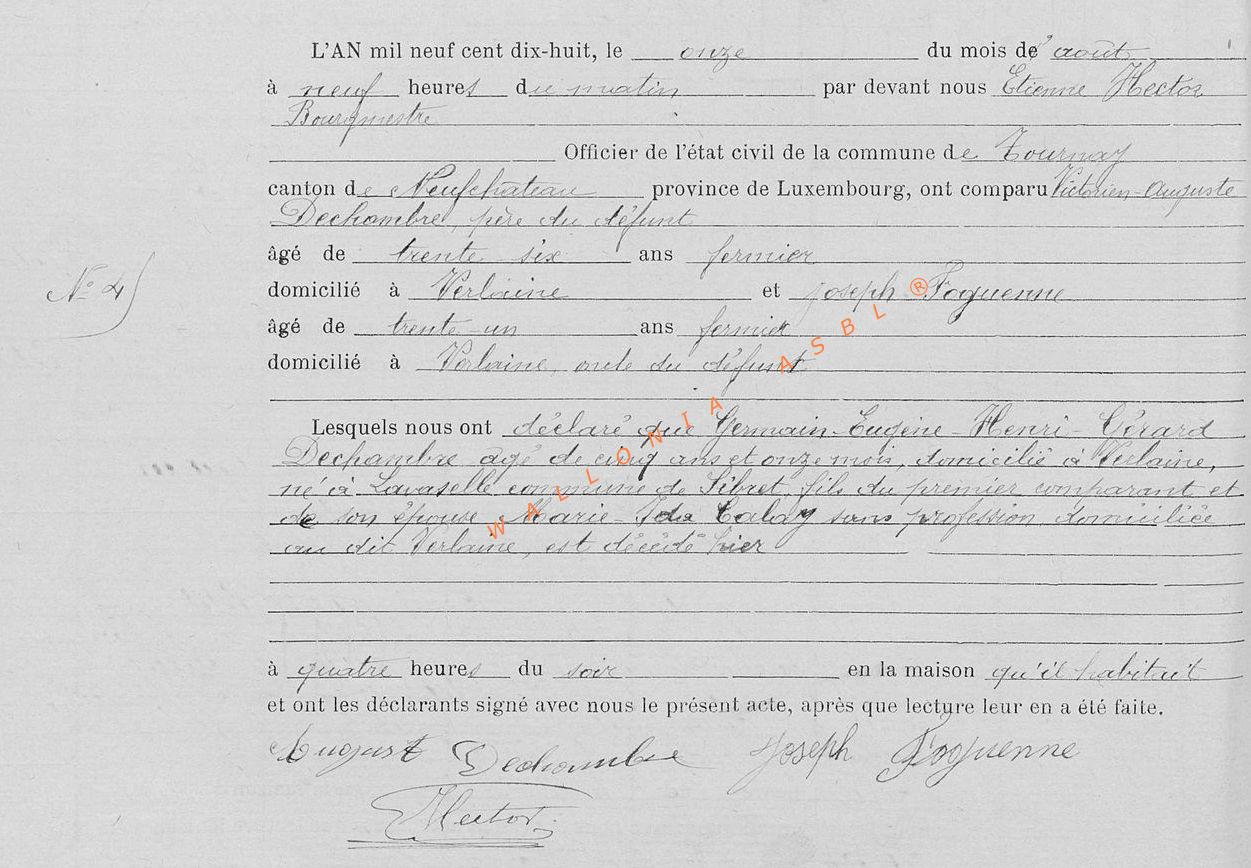 L'AN mil neuf cent dix-huit, le onze du mois d' août
à neuf heures du matin par devant nous Etienne Hector
Bourgmestre
Officier de l'état civil de la commune de Tournay
canton de Neufchateau province de Luxembourg, ont comparu Victorien-Auguste
Dechambre, père du défunt
âgé de trente six ans fermier
domicilié à Verlaine et Joseph Foguenne
âgé de trente-un ans fermier
domicilié à Verlaine, oncle du défunt
Lesquels nous ont déclaré que Germain-Eugène-Henri-Gérard
Dechambre agé de cinq ans et onze mois, domicilié à Verlaine,
né à Lavaselle commune de Sibret, fils du premier comparant et
de son épouse Marie-Ida Calay sans profession domiciliée
au dit Verlaine, est décédé hier
à quatre heures du soir en la maison qu'il habitait
et ont les déclarants signé avec nous le présent acte, après que lecture leur en a été faite.
August Dechambre Joseph Foguenne
Hector
N° 4
WALLONIA ASBL ®